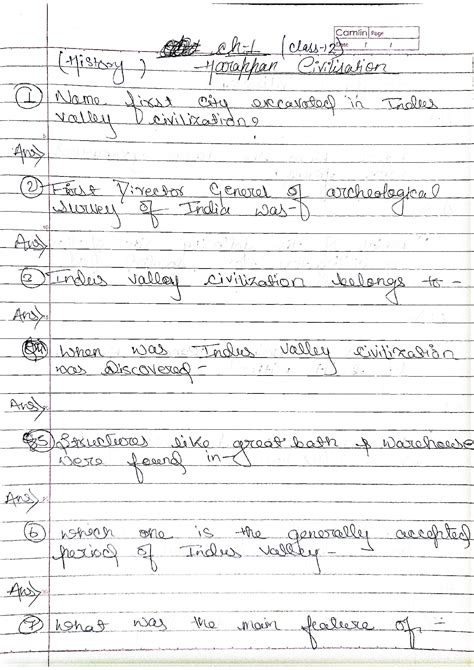 Camlin Page
Date / /
ch-1 (class-12)
(History) Harappan Civilisation
① Name first city excavated in Indus
valley civilization?
Ans)
② First Director General of archeological
survey of India was-
Ans)
③ Indus valley civilization belongs to -
Ans)
④ When was Indus valley civilization
was Discovered -
Ans)
⑤ Structures like great bath & warehouse
were found in-
Ans)
⑥ which one is the generally accepted
period of Indus valley -
Ans)
⑦ What was the main feature of :-